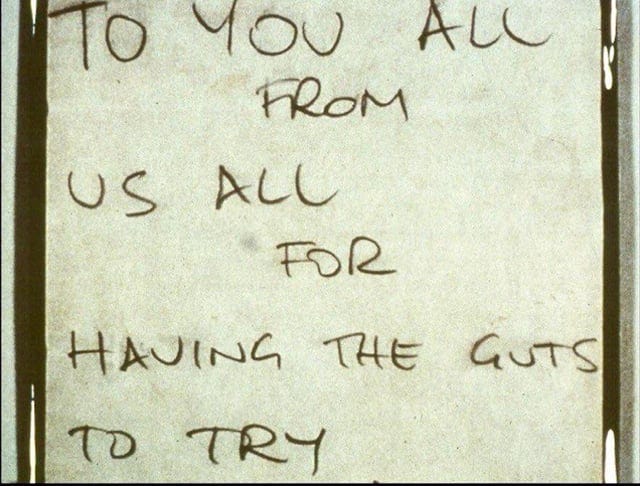 TO YOU ALL
FROM
US ALL
FOR
HAVING THE GUTS
TO TRY